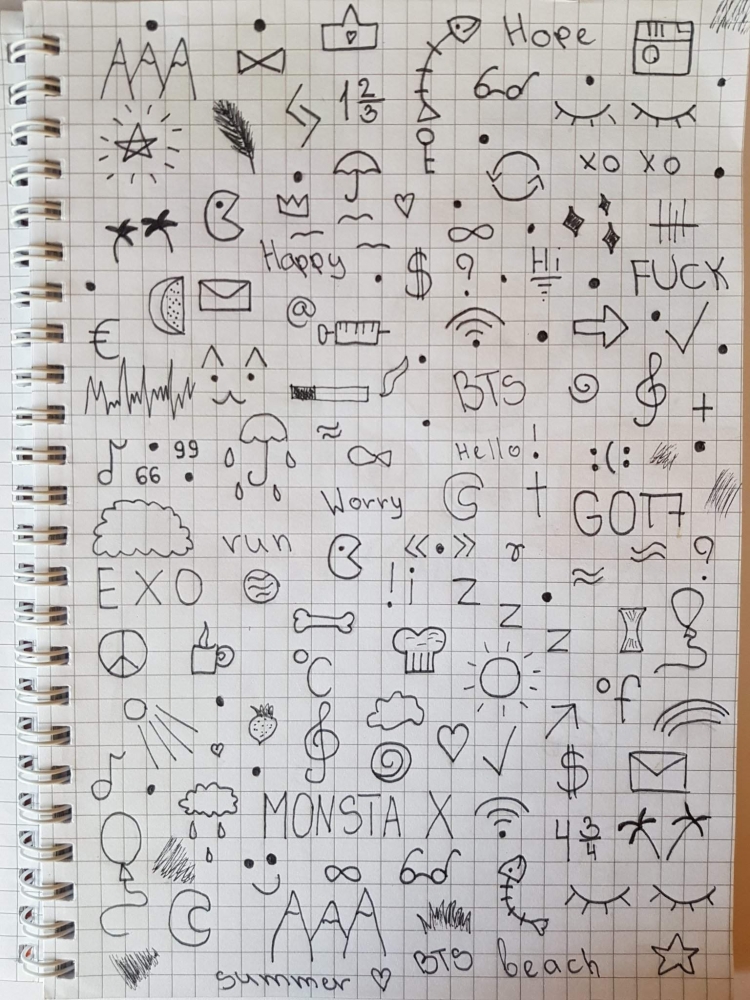 Hope
1 2/3
xo xo
Happy $ ? Hi FUCK
@
€
BTS
99
66
Hello!
Worry GOT7
run « • » r ?
EXO !i z
z
z
°C
°f
$
MONSTA X
4 3/4
BTS beach
summer